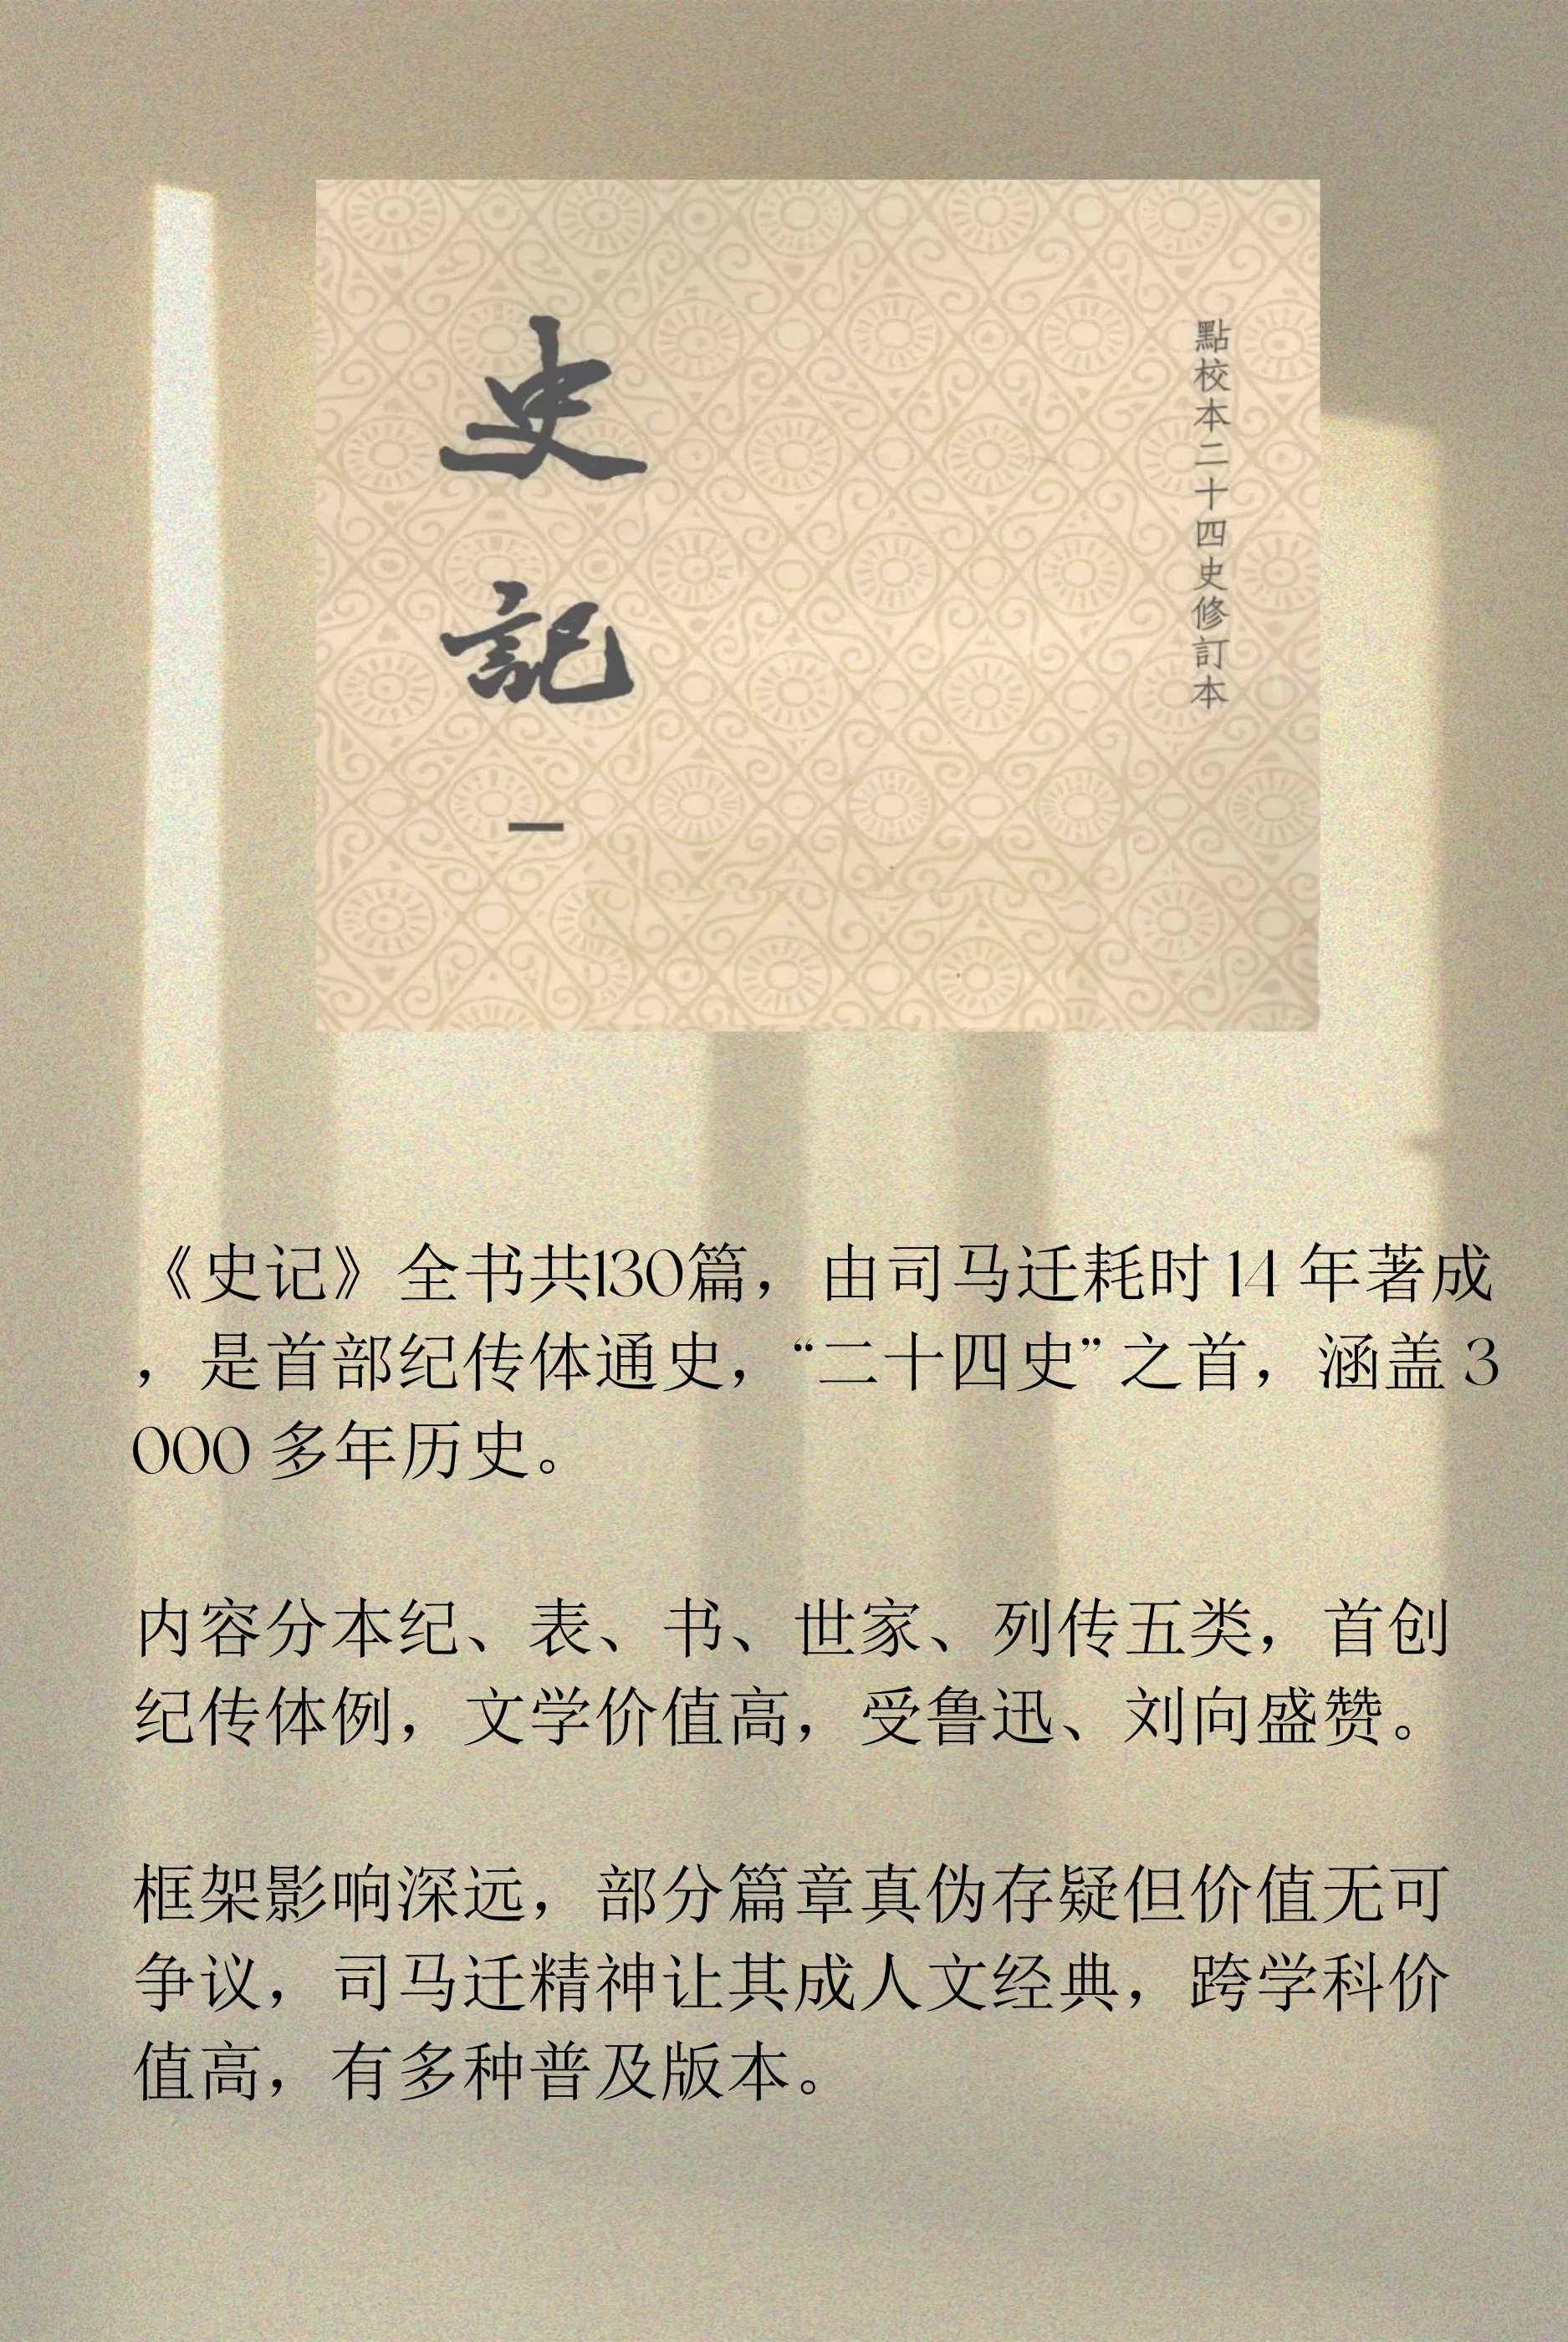 點校本二十四史修訂本
史記
一
《史记》全书共130篇，由司马迁耗时 14 年著成
，是首部纪传体通史，“二十四史” 之首，涵盖 3
000 多年历史。
内容分本纪、表、书、世家、列传五类，首创
纪传体例，文学价值高，受鲁迅、刘向盛赞。
框架影响深远，部分篇章真伪存疑但价值无可
争议，司马迁精神让其成人文经典，跨学科价
值高，有多种普及版本。